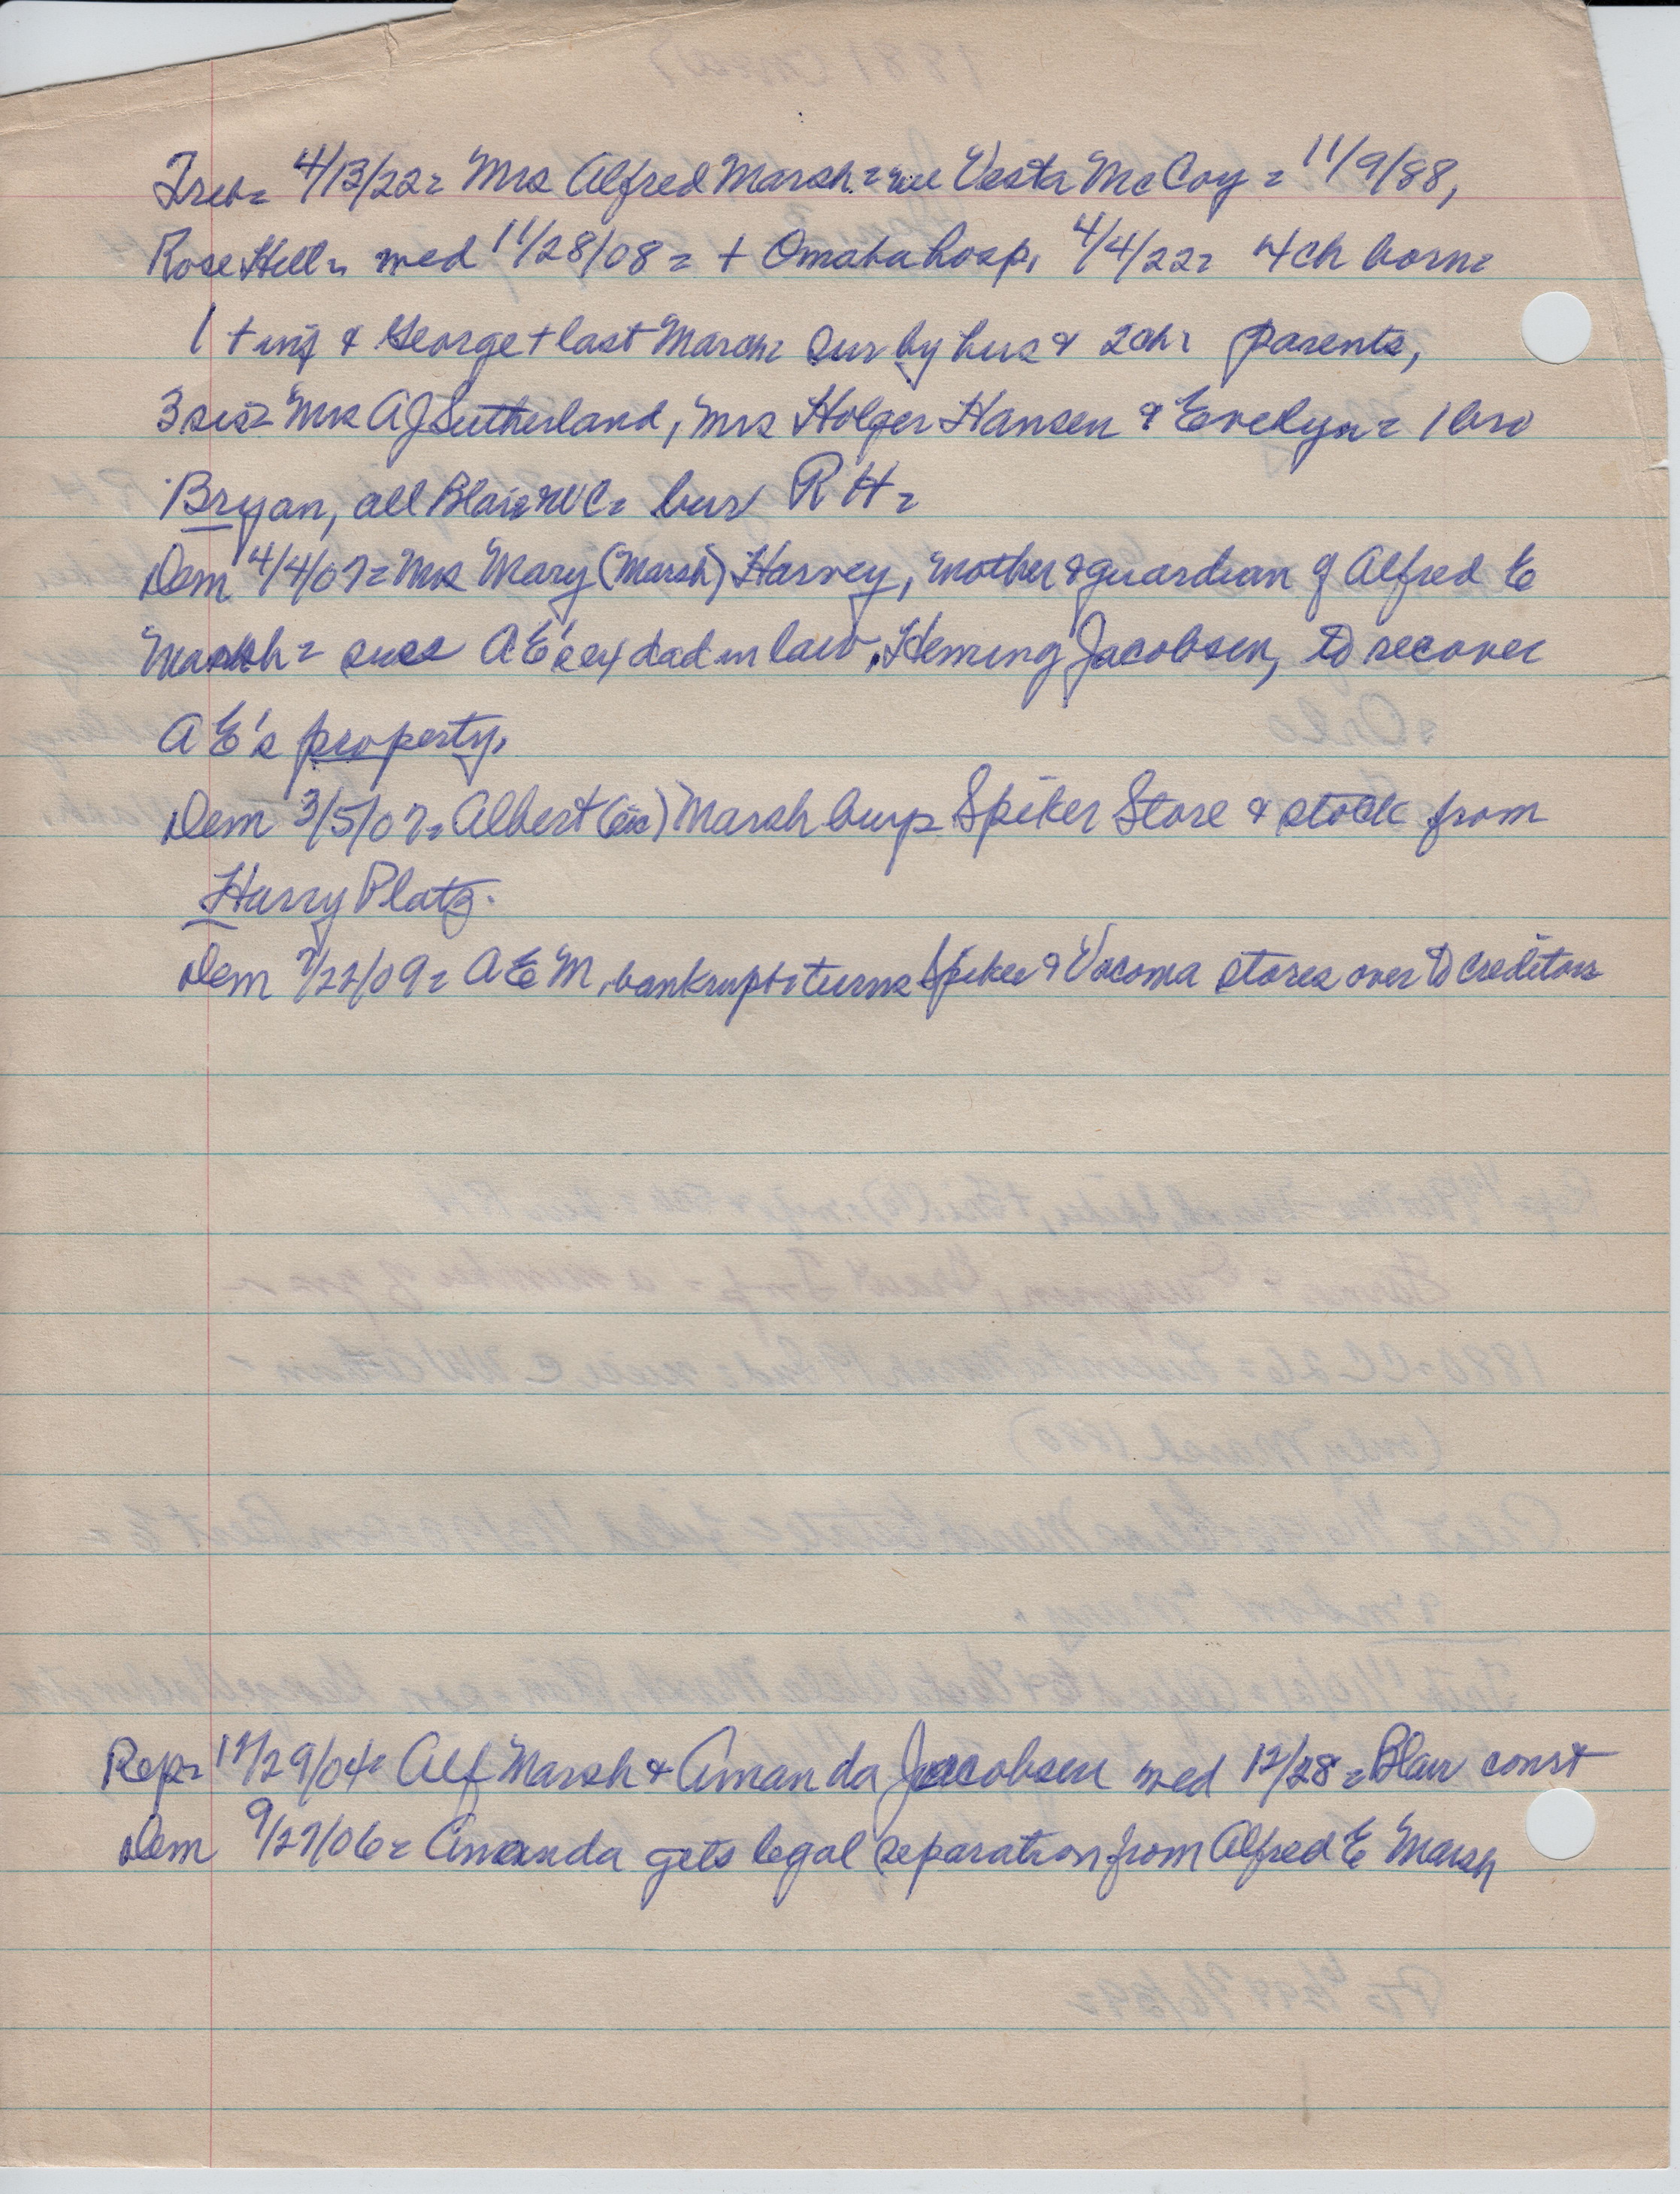 Trib= 4/13/22= Mrs Alfred Marsh= nee Vesta McCoy = 11/9/88,
Rose Hill= med 11/28/08 = + Omaha hosp, 4/4/22= 4 ch born=
1 + inf & George + last March= sur by hus & 2 ch= parents,
3 sis= Mrs A J Sutherland, Mrs Holger Hansen & Evelyn= 1 bro
Bryan, all Blair WC= bur RH=
Dem 4/4/07= Mrs Mary (Marsh) Harvey, mother & guardian of Alfred E
Marsh= sues A E's ex dad in law, Heming Jacobsen, to recover
A E's property.
Dem 3/5/07= Albert (sic) Marsh buys Spiker Store & stock from
Harry Platz.
Dem /22/09= A E M, bankrupt= turns Spiker & Vacoma stores over to creditors
Rep= 12/29/04= Alf Marsh & Amanda Jacobsen med 12/28 = Blair court
Dem 9/27/06= Amanda gets legal separation from Alfred E Marsh